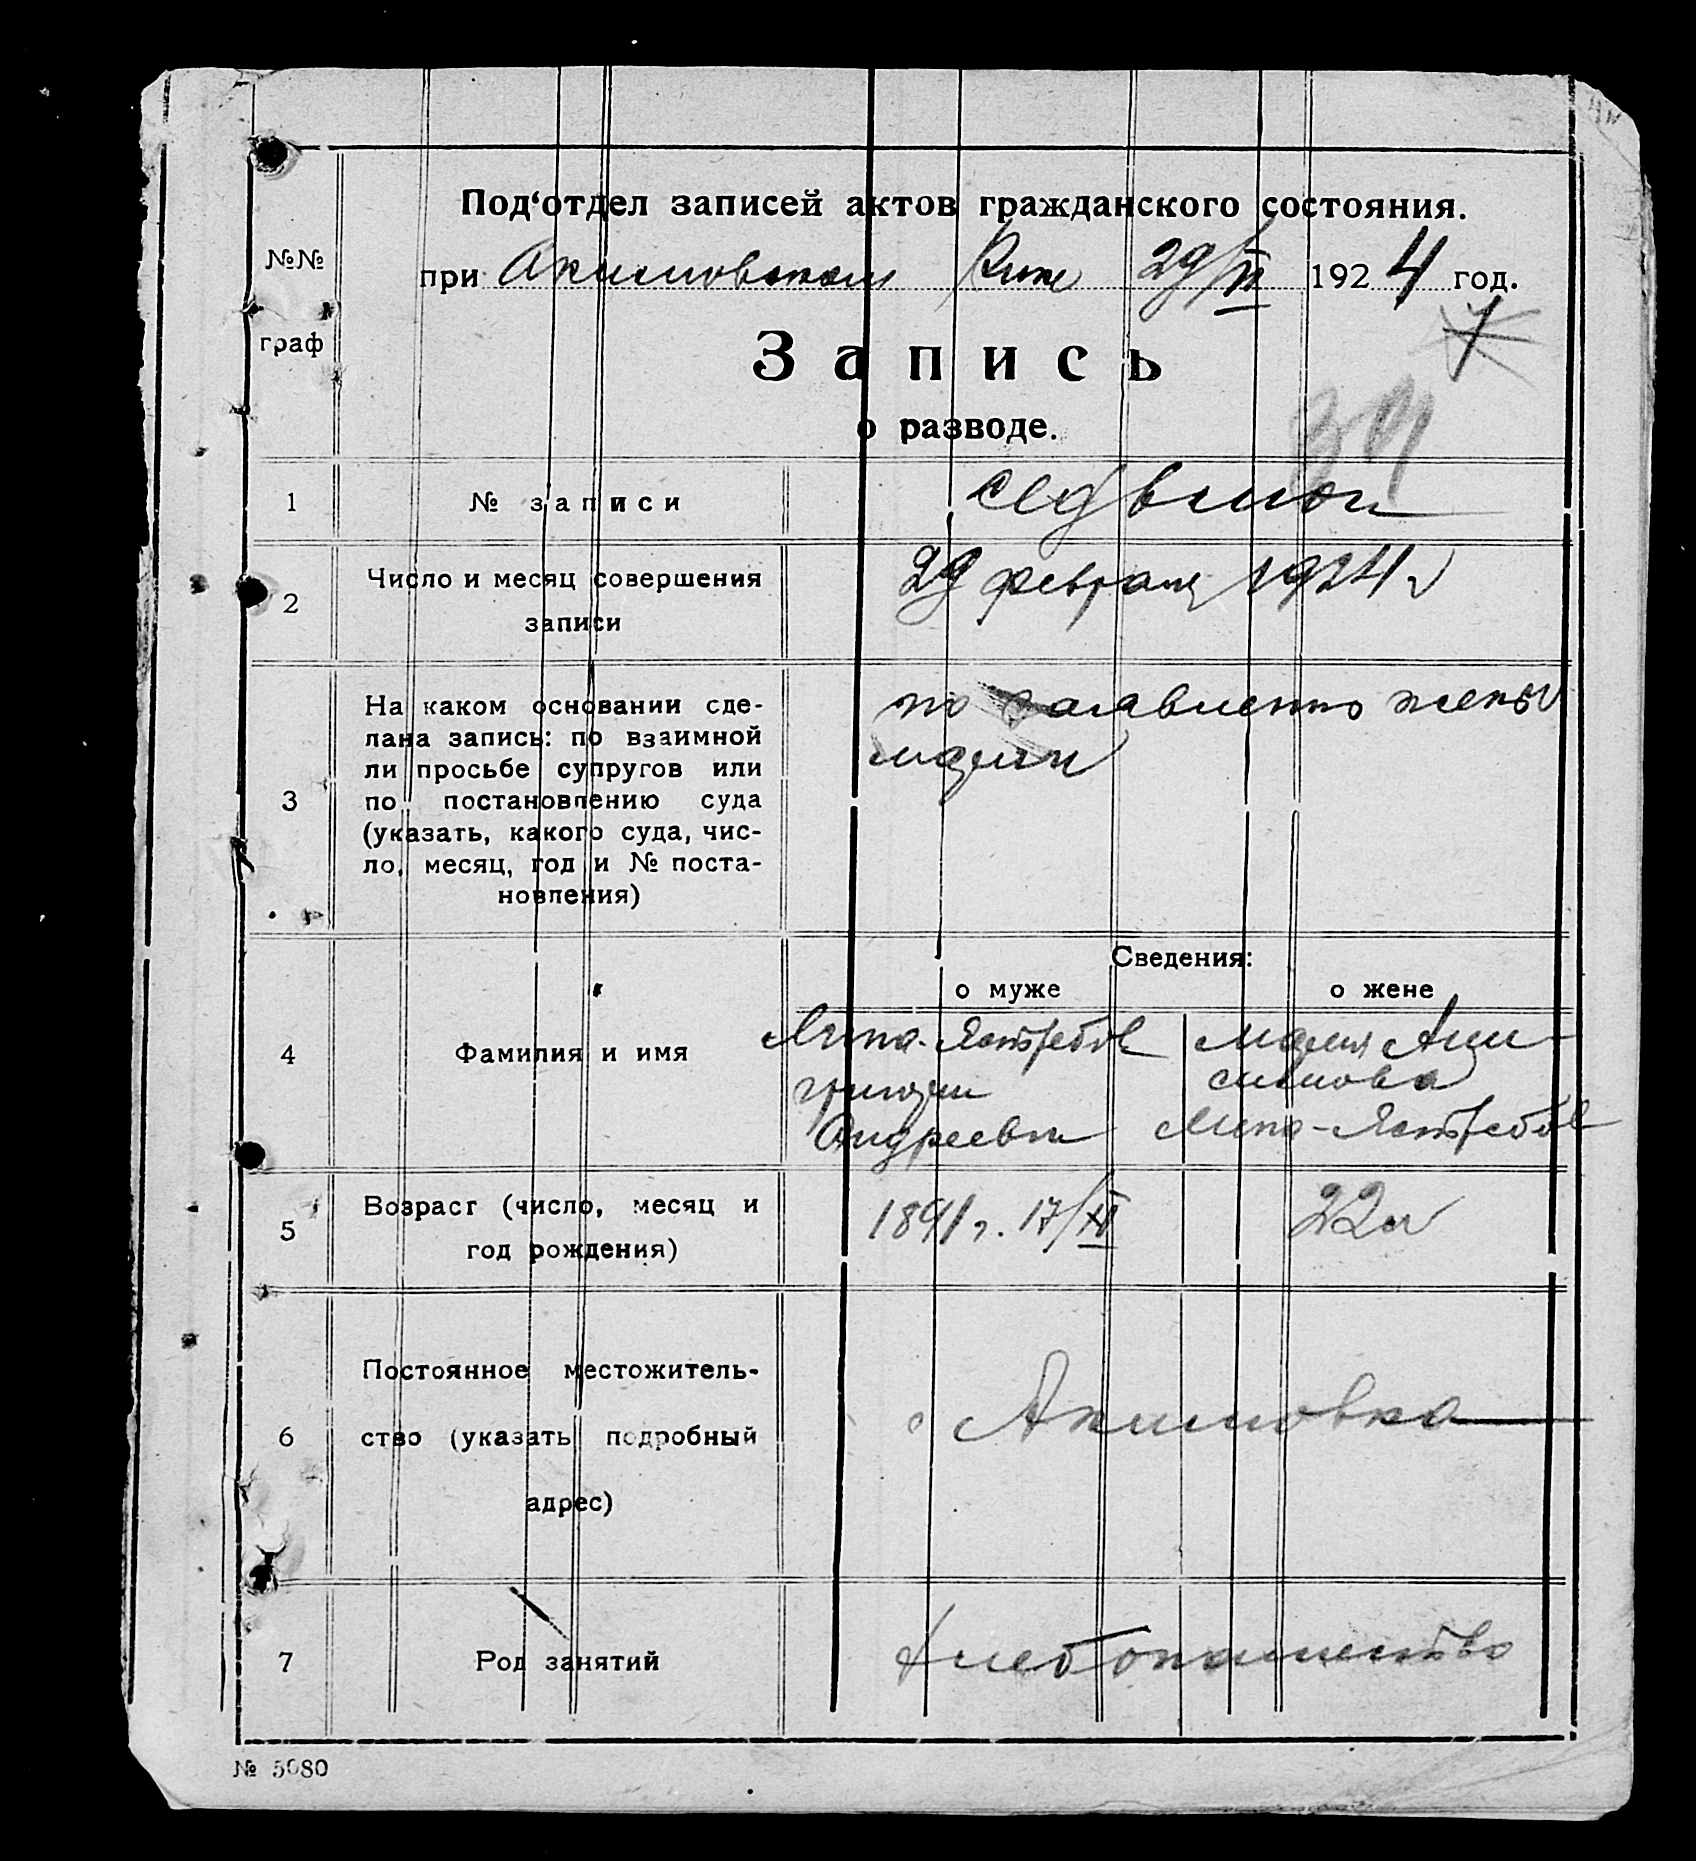 Под‘отдел записей актов гражданского состояния.
№№
граф
при Акимовском 29/II 1924 год.
7
Запись
о разводе.
1 № записи седьмой
2 Число и месяц совершения
записи
29 февраля 1924 г
3 На каком основании сде-
лана запись: по взаимной
ли просьбе супругов или
по постановлению суда
(указать, какого суда, чис-
ло, месяц, год и № поста-
новления)
по заявлению жены
Марии
Сведения:
о муже о жене
4 Фамилия и имя
Липо-Ястребов
Григорий
Андреевич
Мария Ани-
симова
Липо-Ястребов
5 Возраст (число, месяц и
год рождения)
17/XI
22
6 Постоянное местожитель-
ство (указать подробный
адрес)
с Акимовка
7 Род занятий хлебопашество
№ 5080